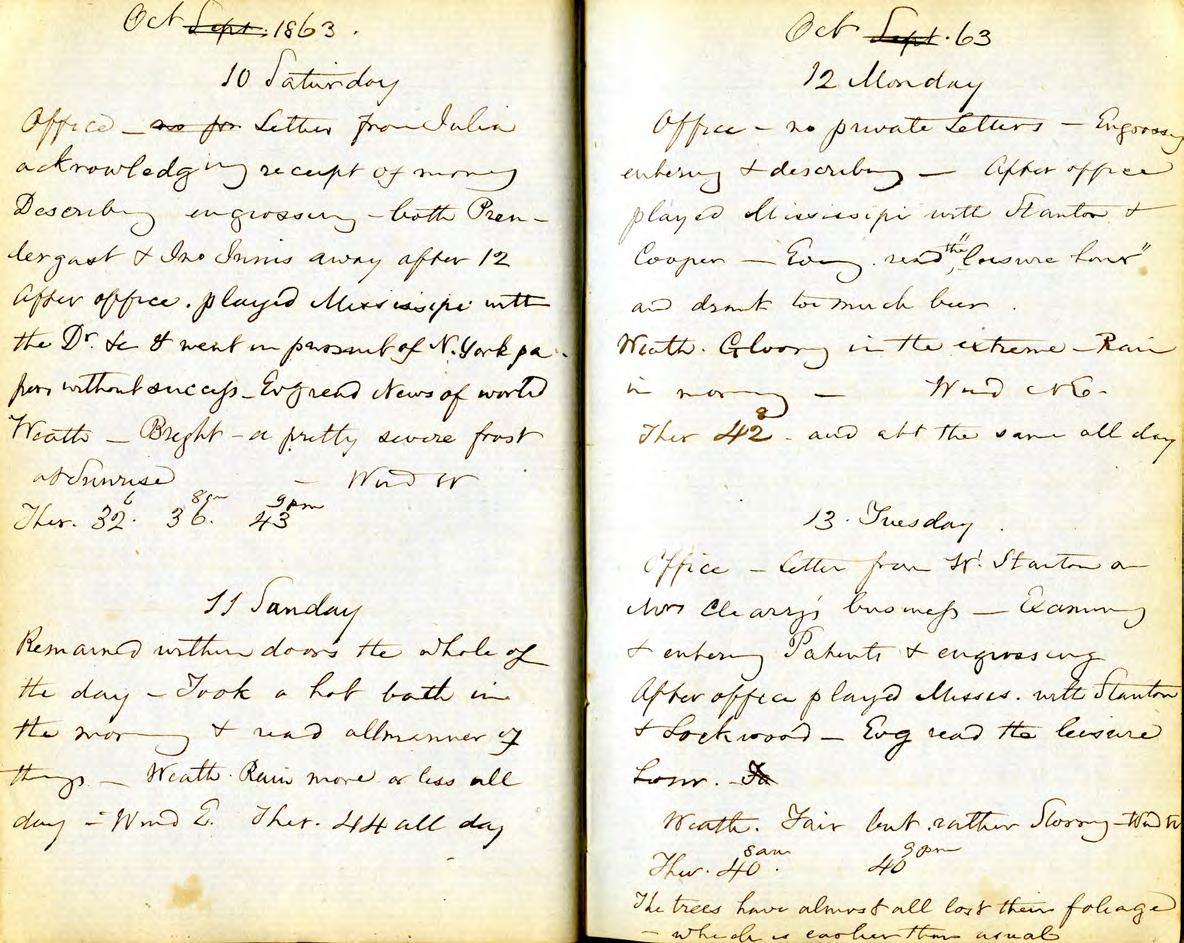 Oct Sept. 1863.
10 Saturday
Office - no pr Letter from Julia
acknowledging receipt of money
Describing engrossing - both Pren-
dergast & Jno Innis away after 12
After office. played Mississipi with
the Dr. &c & went in persuit of N. York pa-
pers without success - Evg read News of world
Weath - Bright - a pretty severe frost
at Sunrise - Wind W
6 8am 9pm
Ther. 32. 36. 43
11 Sunday
Remained within doors the whole of
the day - Took a hot bath in
the morning & read all manner of
things - Weath. Rain more or less all
day - Wind E. Ther. 44 all day
Oct Sept. 63
12 Monday
Office - no private Letters - Engrossg
entering & describing - After office
played Mississipi with Stanton &
Cooper - Eveng. read the "Leisure hour"
and drank too much beer.
Weath. Gloomy in the extreme - Rain
in morning - Wind NE.
8
Ther 42 - and abt the same all day
13. Tuesday.
Office - Letter from Stanton on
Mrs Clearry's business - Examing
& entering Patents & engrossing
After office played Missis. with Stanton
& Lockwood - Evg read the leisure
hour. To
Weath. Fair but rather Stormy - Wind W
8am 9pm
Ther. 40. 40
The trees have almost all lost their foliage
- which is earlier than usual